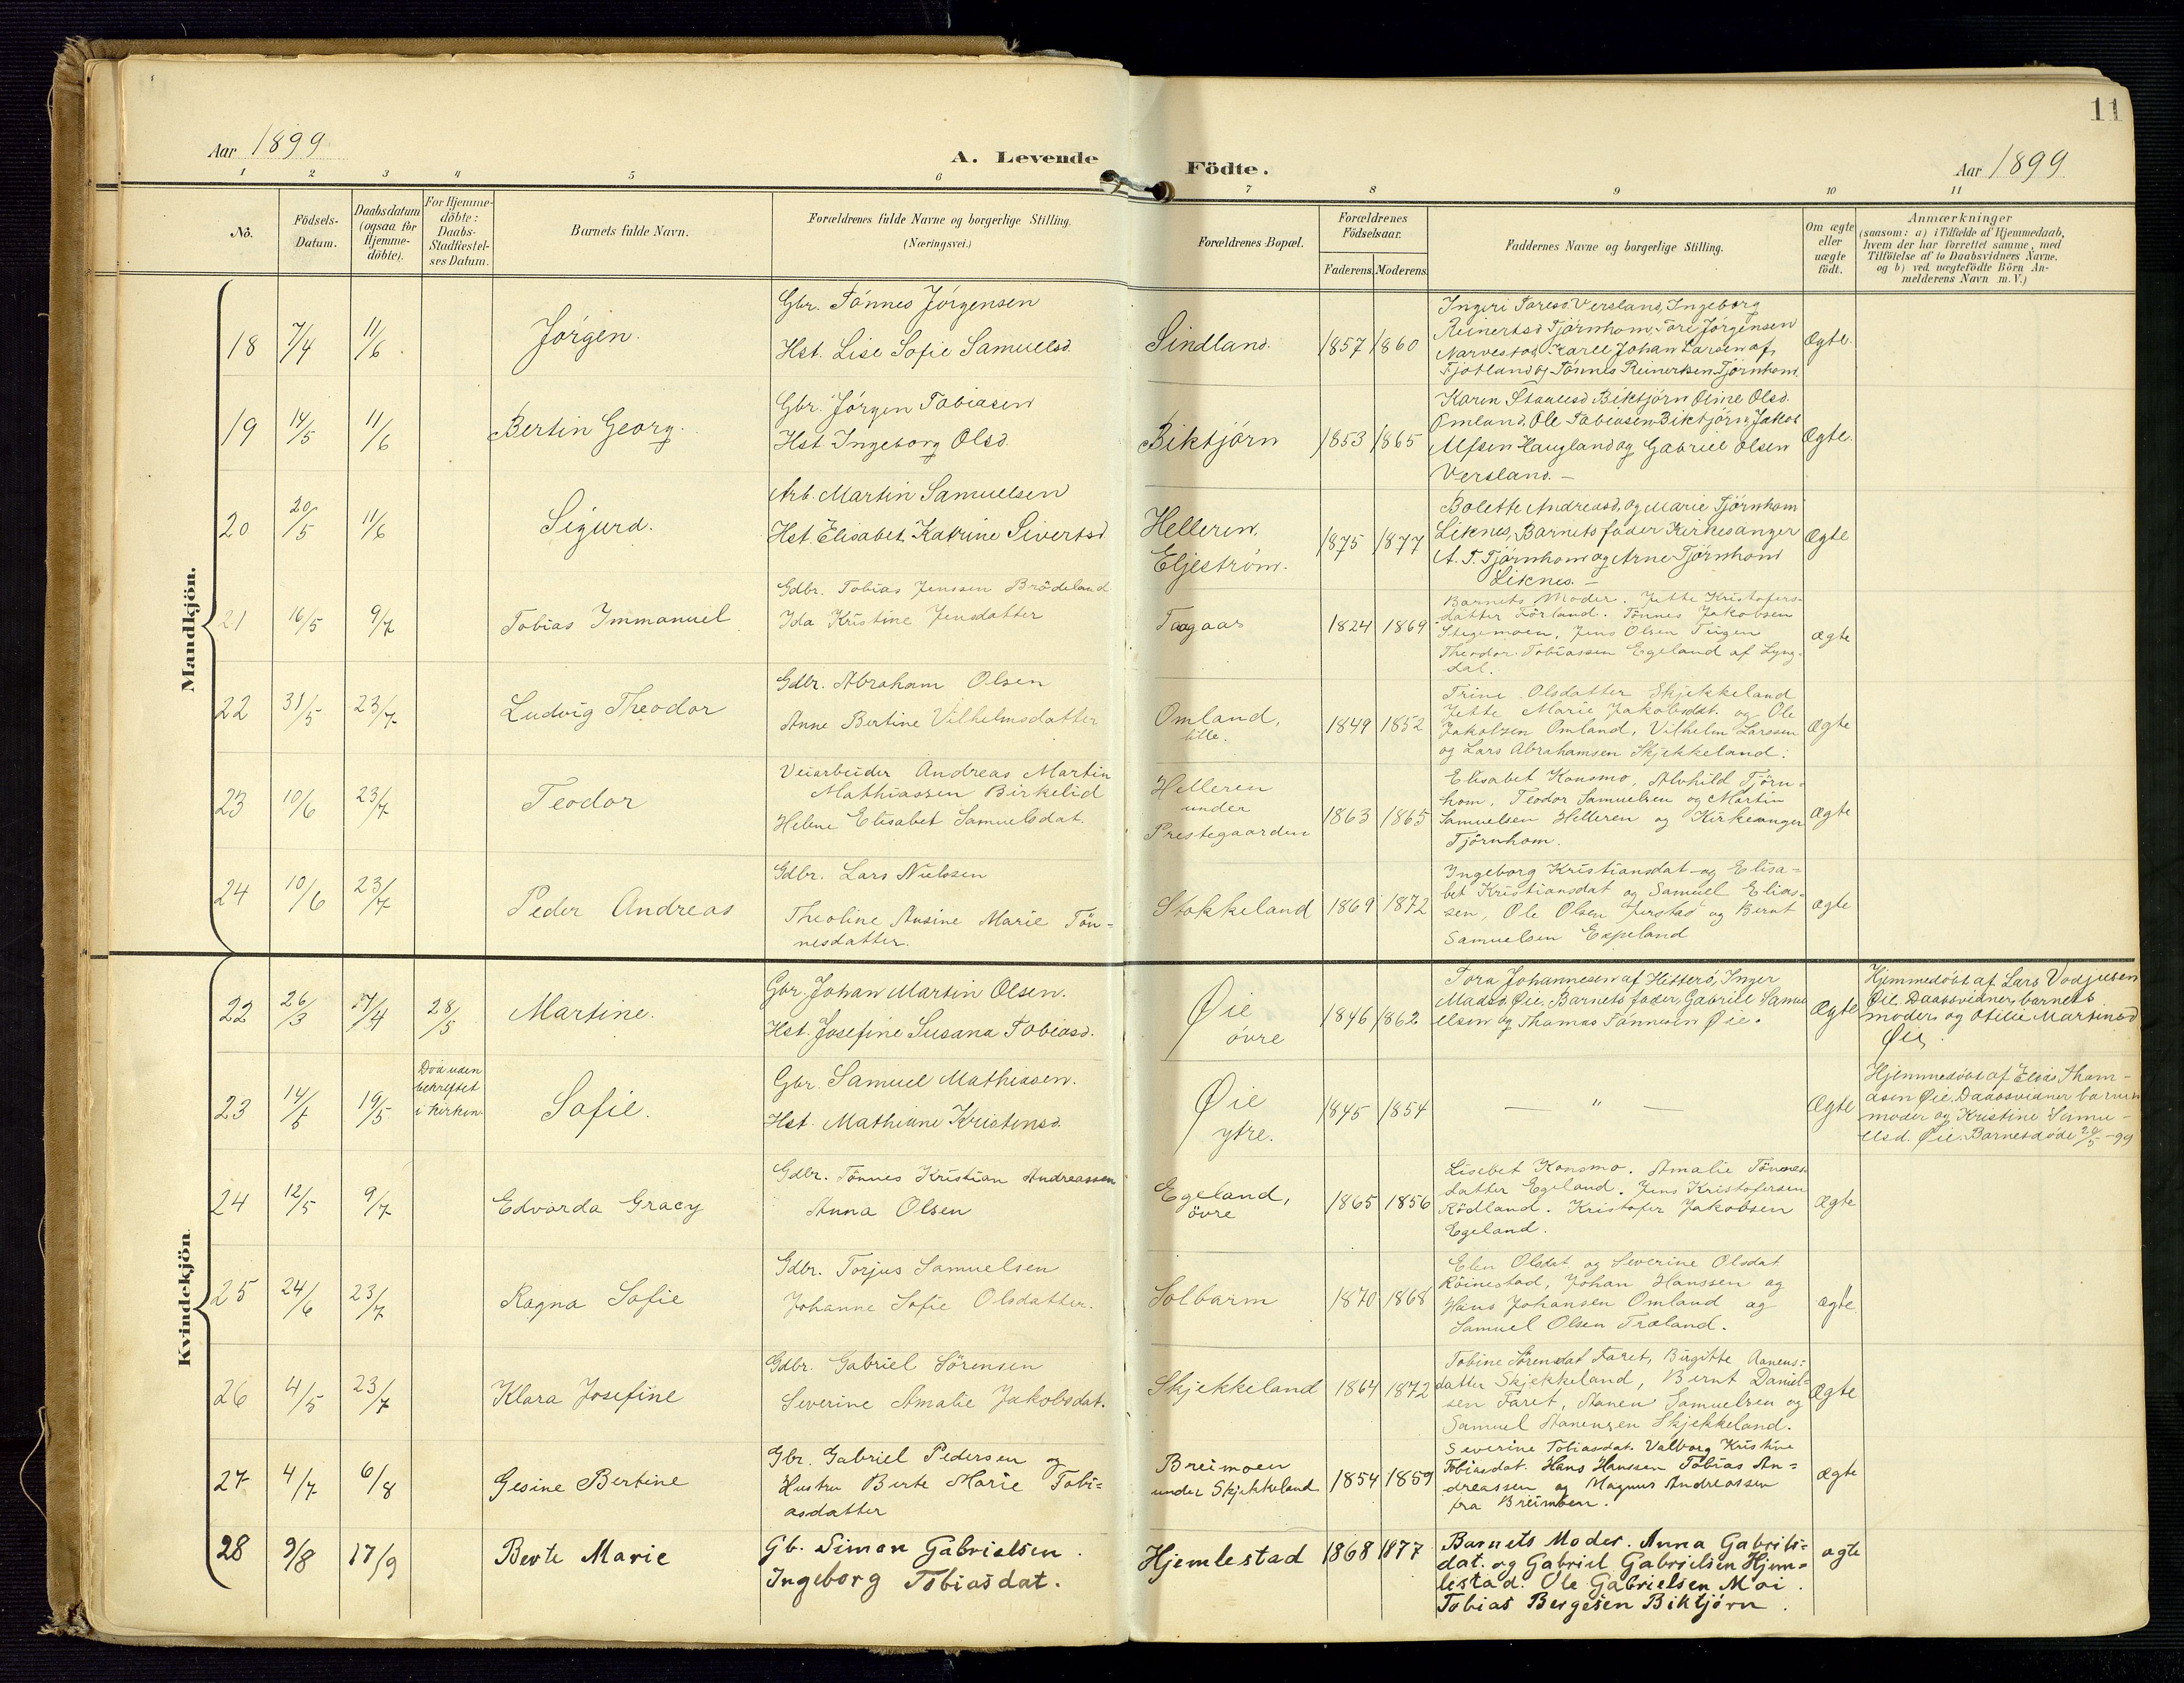 11
Aar 1899
A. Levende Födte.
Aar 1899
1 2 3 4 5 6 7 8 9 10 11
No.
Födsels-Datum.
Daabsdatum (ogsaa for Hjemme-döbte).
For Hjemme-döbte: Daabs-Stadfæstel-ses Datum.
Barnets fulde Navn.
Forældrenes fulde Navne og borgerlige Stilling.
(Næringsvei.)
Forældrenes Bopæl.
Forældrenes Födselsaar.
Faderens. Moderens.
Faddernes Navne og borgerlige Stilling.
Om ægte eller uægte födt.
Anmærkninger
(saasom: a) i Tilfælde af Hjemmedaab,
hvem der har forrettet samme, med
Tilföielse af to Daabsvidners Navne.
og b) ved uægtefödte Börn An-
melderens Navn m. V.)
Mandkjön.
18 7/4 11/6 Jørgen.
Gbr. Tønnes Jørgensen
Hst. Lise Sofie Samuelsd.
Sindland. 1857 1860
Ingeri Taresd Versland, Ingeborg
Reinertsd Tjørnhom, Tore Jørgensen
Narvestad, Karel Johan Larsen af
Fjotland og Tønnes Reinertsen Tjørnhom.
Ægte.
19 14/5 11/6 Bertin Georg.
Gbr. Jørgen Tobiasen
Hst. Ingeborg Olsd.
Biktjørn 1853 1865
Karen Biktjørn Olsd.
Omland, Ole Tobiasen Biktjørn, Jakob
Alfsen Haugland og Gabriel Olsen
Versland. –
Ægte.
20 20/5 11/6 Sigurd.
Arb. Martin Samuelsen
Hst. Elisabet Katrine Sivertsd.
Helleren,
Eljestrøm. 1875 1877
Bolette Andreasd, og Marie Tjørnhom
Liknes, Barnets fader Kirkesanger
A. T. Tjørnhom og Arne Tjørnhom
Liknes. –
Ægte
21 16/5 9/7 Tobias Immanuel
Gdbr. Tobias Jenssen Brødeland
Ida Kristine Jensdatter
Taagaas 1824 1869
Barnets Moder. Jette Kristofers-
datter Førland. Tønnes Jakobsen
Stegemoen, Jens Olsen Teigen
Theodor Tobiassen Egeland af Lyng-
dal.
ægte
22 31/5 23/7 Ludvig Theodor
Gdbr. Abraham Olsen
Anne Bertine Vilhelmsdatter
Omland,
lille. 1849 1852
Trine Olsdatter Skjekkeland
Jette Marie Jakobsdat. og Ole
Jakobsen Omland, Vilhelm Larssen
og Lars Abrahamsen Skjekkeland.
Ægte
23 10/6 23/7 Teodor
Veiarbeider Andreas Martin
Mathiassen Birkelid
Helene Elisabet Samuelsdat.
Helleren
under
Prestegaarden 1863 1865
Elisabet Konsmo, Alvhild Tjørn-
hom, Teodor Samuelsen og Martin
Samuelsen Helleren og Kirkesanger
Tjørnhom.
Ægte
24 10/6 23/7 Peder Andreas
Gdbr. Lars Nielssen
Theoline Ansine Marie Tøn-
nesdatter.
Stokkeland 1869 1872
Ingeborg Kristiansdat og Elisa-
bet Kristiansdat og Samuel Elias-
sen, Ole Olsen Jerstad og Bernt
Samuelsen Espeland
ægte
Kvindekjön.
22 26/3 27/4 28/5 Martine.
Gbr. Johan Martin Olsen.
Hst. Josefine Susana Tobiasd.
Øie
øvre 1846 1862
Tora Johannesen af Hitterø, Inger
Madsd Øie, Barnets fader, Gabriel Samu
elsen og Thomas Tønnesen Øie.
Ægte
Hjemmedøbt af Lars Vodjusen
Øie. Daabsvidner, barnets
moder og Otilie Martinsd
Øie.
23 14/5 19/5
Død uden
bekreftet
i kirken
Sofie.
Gbr. Samuel Mathiasen.
Hst. Mathiane Kristensd.
Øie
ytre. 1845 1854
— " —
Ægte
Hjemmedøbt af Elias Tham-
dsen Øie, Daabsvidner barnets
moder og Kristine Samu-
elsd. Øie. Barnet døde 20/5 - 99
24 12/5 9/7 Edvarda Gracy
Gdbr. Tönnes Kristian Andreassen
Anna Olsen
Egeland,
øvre 1865 1856
Lisebet Konsmo. Amalie Tönnes-
datter Egeland. Jens Kristofersen
Rödland. Kristofer Jakobsen
Egeland.
ægte
25 24/6 23/7 Ragna Sofie
Gdbr. Torjus Samuelsen
Johanne Sofie Olsdatter.
Solbarm 1870 1868
Elen Olsdat og Severine Olsdat
Röinestad, Johan Hanssen og
Hans Johansen Omland og
Samuel Olsen Træland.
ægte
26 4/5 23/7 Klara Josefine
Gdbr. Gabriel Sörensen
Severine Amalie Jakobsdat.
Skjekkeland 1864 1872
Tobine Sörensdat Faret, Birgitte Aanens-
datter Skjekkeland, Bernt Daniel-
sen Faret, Aanen Samuelsen og
Samuel Aanensen Skjekkeland.
Ægte
27 4/7 6/8 Gesine Bertine
Gbr. Gabriel Pedersen og
Hustru Berte Marie Tobi-
asdatter
Breimoen
under Skjekkeland 1854 1859
Severine Tobiasdat. Valborg Kristine
Tobiasdat. Hans Hanssen Tobias An-
dreassen og Magnus Andreassen
fra Breimoen.
ægte
28 9/8 17/9 Berte Marie
Gb. Simon Gabrielsen.
Ingeborg Tobiasdat.
Hjemlestad 1868 1877
Barnets Moder. Anna Gabriels-
dat. og Gabriel Gabrielsen Hjem-
lestad. Ole Gabrielsen Moi.
Tobias Bergesen Biktjørn.
ægte